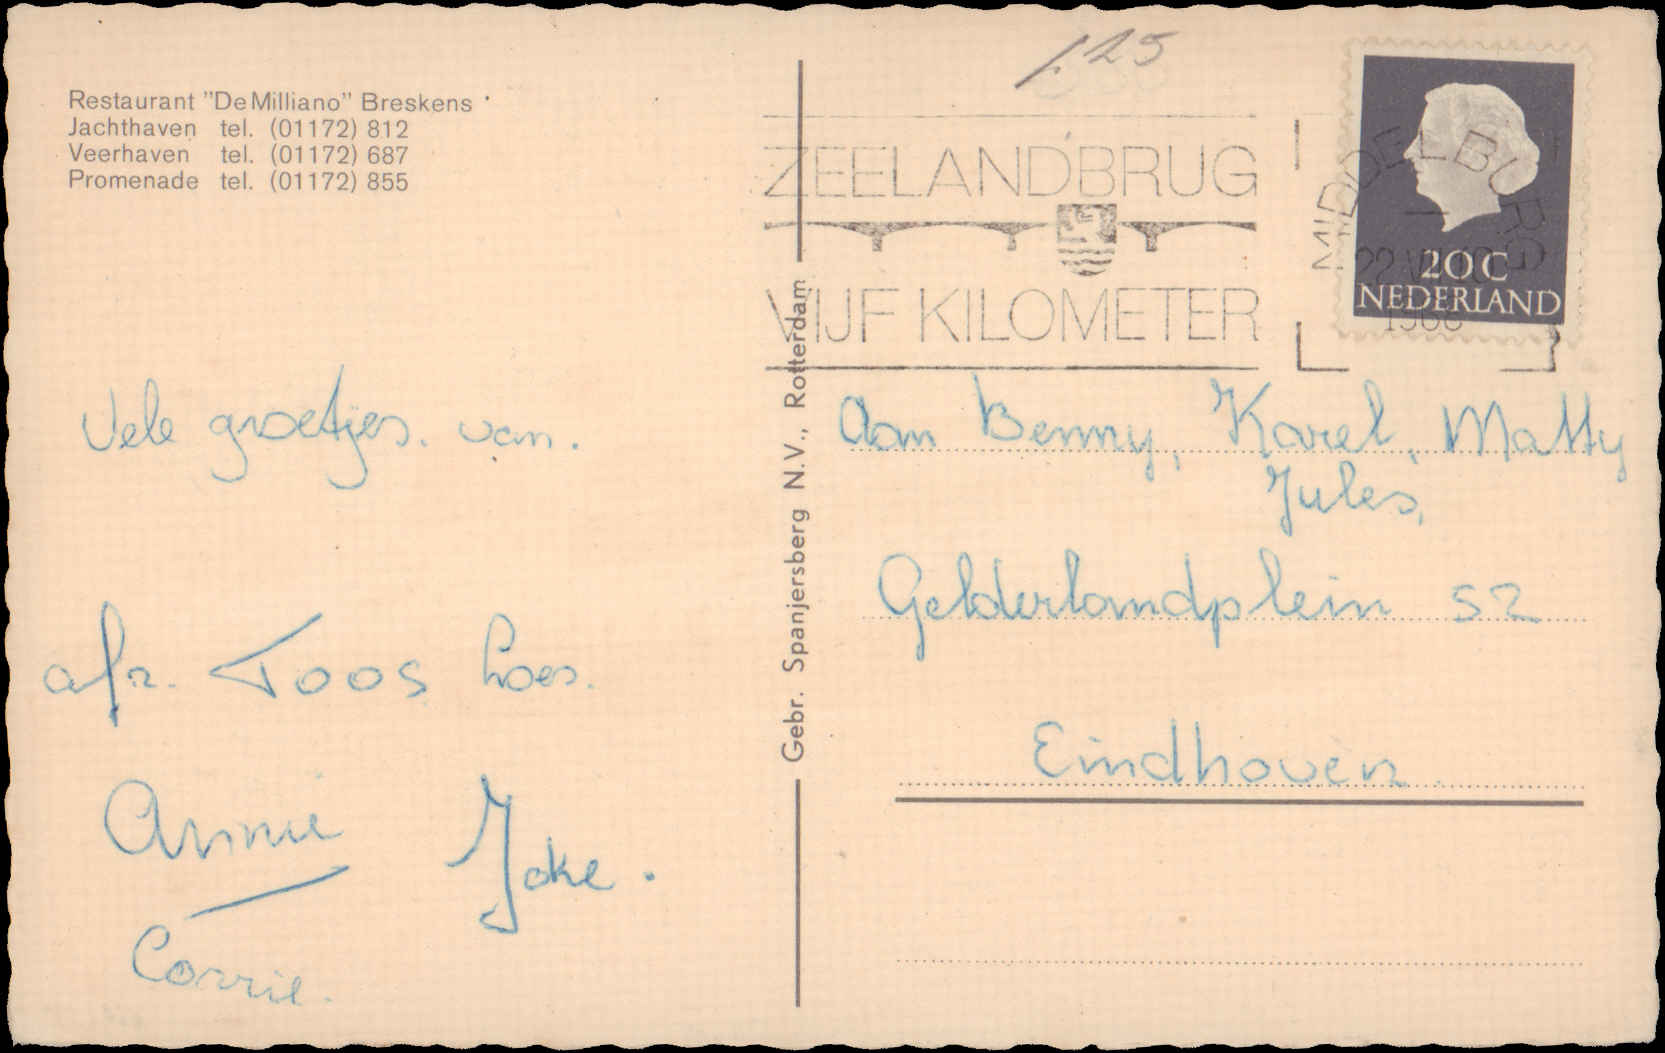 Restaurant "De Milliano" Breskens
Jachthaven tel. (01172) 812
Veerhaven tel. (01172) 687
Promenade tel. (01172) 855
Vele groetjes. van.
afz. Toos Loes.
Annie
Joke.
Corrie.
Gebr. Spanjersberg N.V., Rotterdam
125
ZEELANDBRUG
VIJF KILOMETER
MIDDELBURG
1968
20 C
NEDERLAND
Aan Benny, Karel, Matty
Jules,
Gelderlandplein 52
Eindhoven.